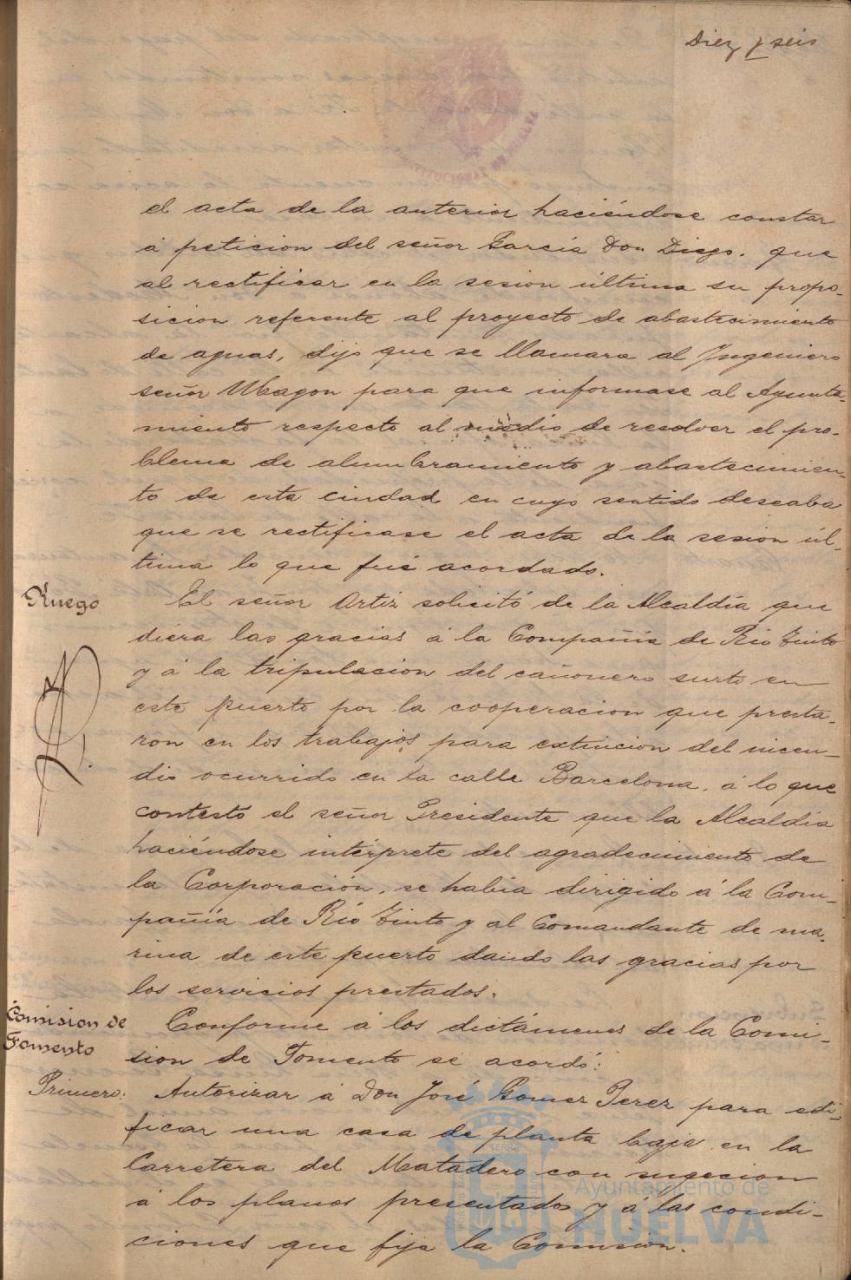 Diez y seis
el acta de la anterior haciéndose constar
á peticion del señor García Don Diego, que
al rectificar en la sesion última su propo-
sicion referente al proyecto de abastecimiento
de aguas, dijo que se llamara al Ingeniero
señor Magon para que informase al Ayunta-
miento respecto al medio de resolver el pro-
blema de alumbramiento y abastecimien-
to de esta ciudad en cuyo sentido deseaba
que se rectificase el acta de la sesion úl-
tima lo que fué acordado.
Ruego
El señor Ortiz solicitó de la Alcaldía que
diera las gracias á la Compañía de Rio Tinto
y á la tripulacion del cañonero surto en
este puerto por la cooperacion que presta-
ron en los trabajos para extincion del incen-
dio ocurrido en la calle Barcelona, á lo que
contestó el señor Presidente que la Alcaldía
haciéndose intérprete del agradecimiento de
la Corporación, se habia dirigido á la Com-
pañía de Rio Tinto y al Comandante de ma-
rina de este puerto dando las gracias por
los servicios prestados.
Comision de
Fomento
Conforme á los dictámenes de la Comi-
sion de Fomento se acordó:
Primero:
Autorizar á Don José Gomez Perez para edi-
ficar una casa de planta baja en la
Carretera del Matadero con sugecion
á los planos presentados y á las condi-
ciones que fija la Comision.
Ayuntamiento de
HUELVA